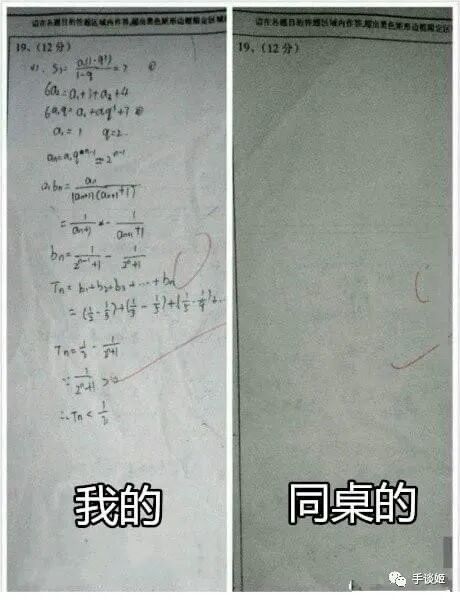 请在各题目的答题区域内作答,超出黑色矩形边框限定区
19、(12分)
S₃=a₁(1-q³)/1-q=7 ①
6a₂=a₁+3+a₃+4
6a₁q=a₁+a₁q²+7 ②
a₁=1 q=2
aₙ=a₁qⁿ⁻¹=2ⁿ⁻¹
(2) bₙ=aₙ/(aₙ+1)(aₙ₊₁+1)
=1/aₙ+1 - 1/aₙ₊₁+1
bₙ=1/2ⁿ⁻¹+1 - 1/2ⁿ+1
Tₙ=b₁+b₂+b₃+…+bₙ
=(1/2-1/3)+(1/3-1/5)+(1/5-1/9)+…
Tₙ=1/2-1/2ⁿ+1
∵1/2ⁿ+1>0
∴Tₙ<1/2
我的
请在各题目的答题区域内作答,超出黑色矩形边框限定区
19、(12分)
同桌的
手谈姬